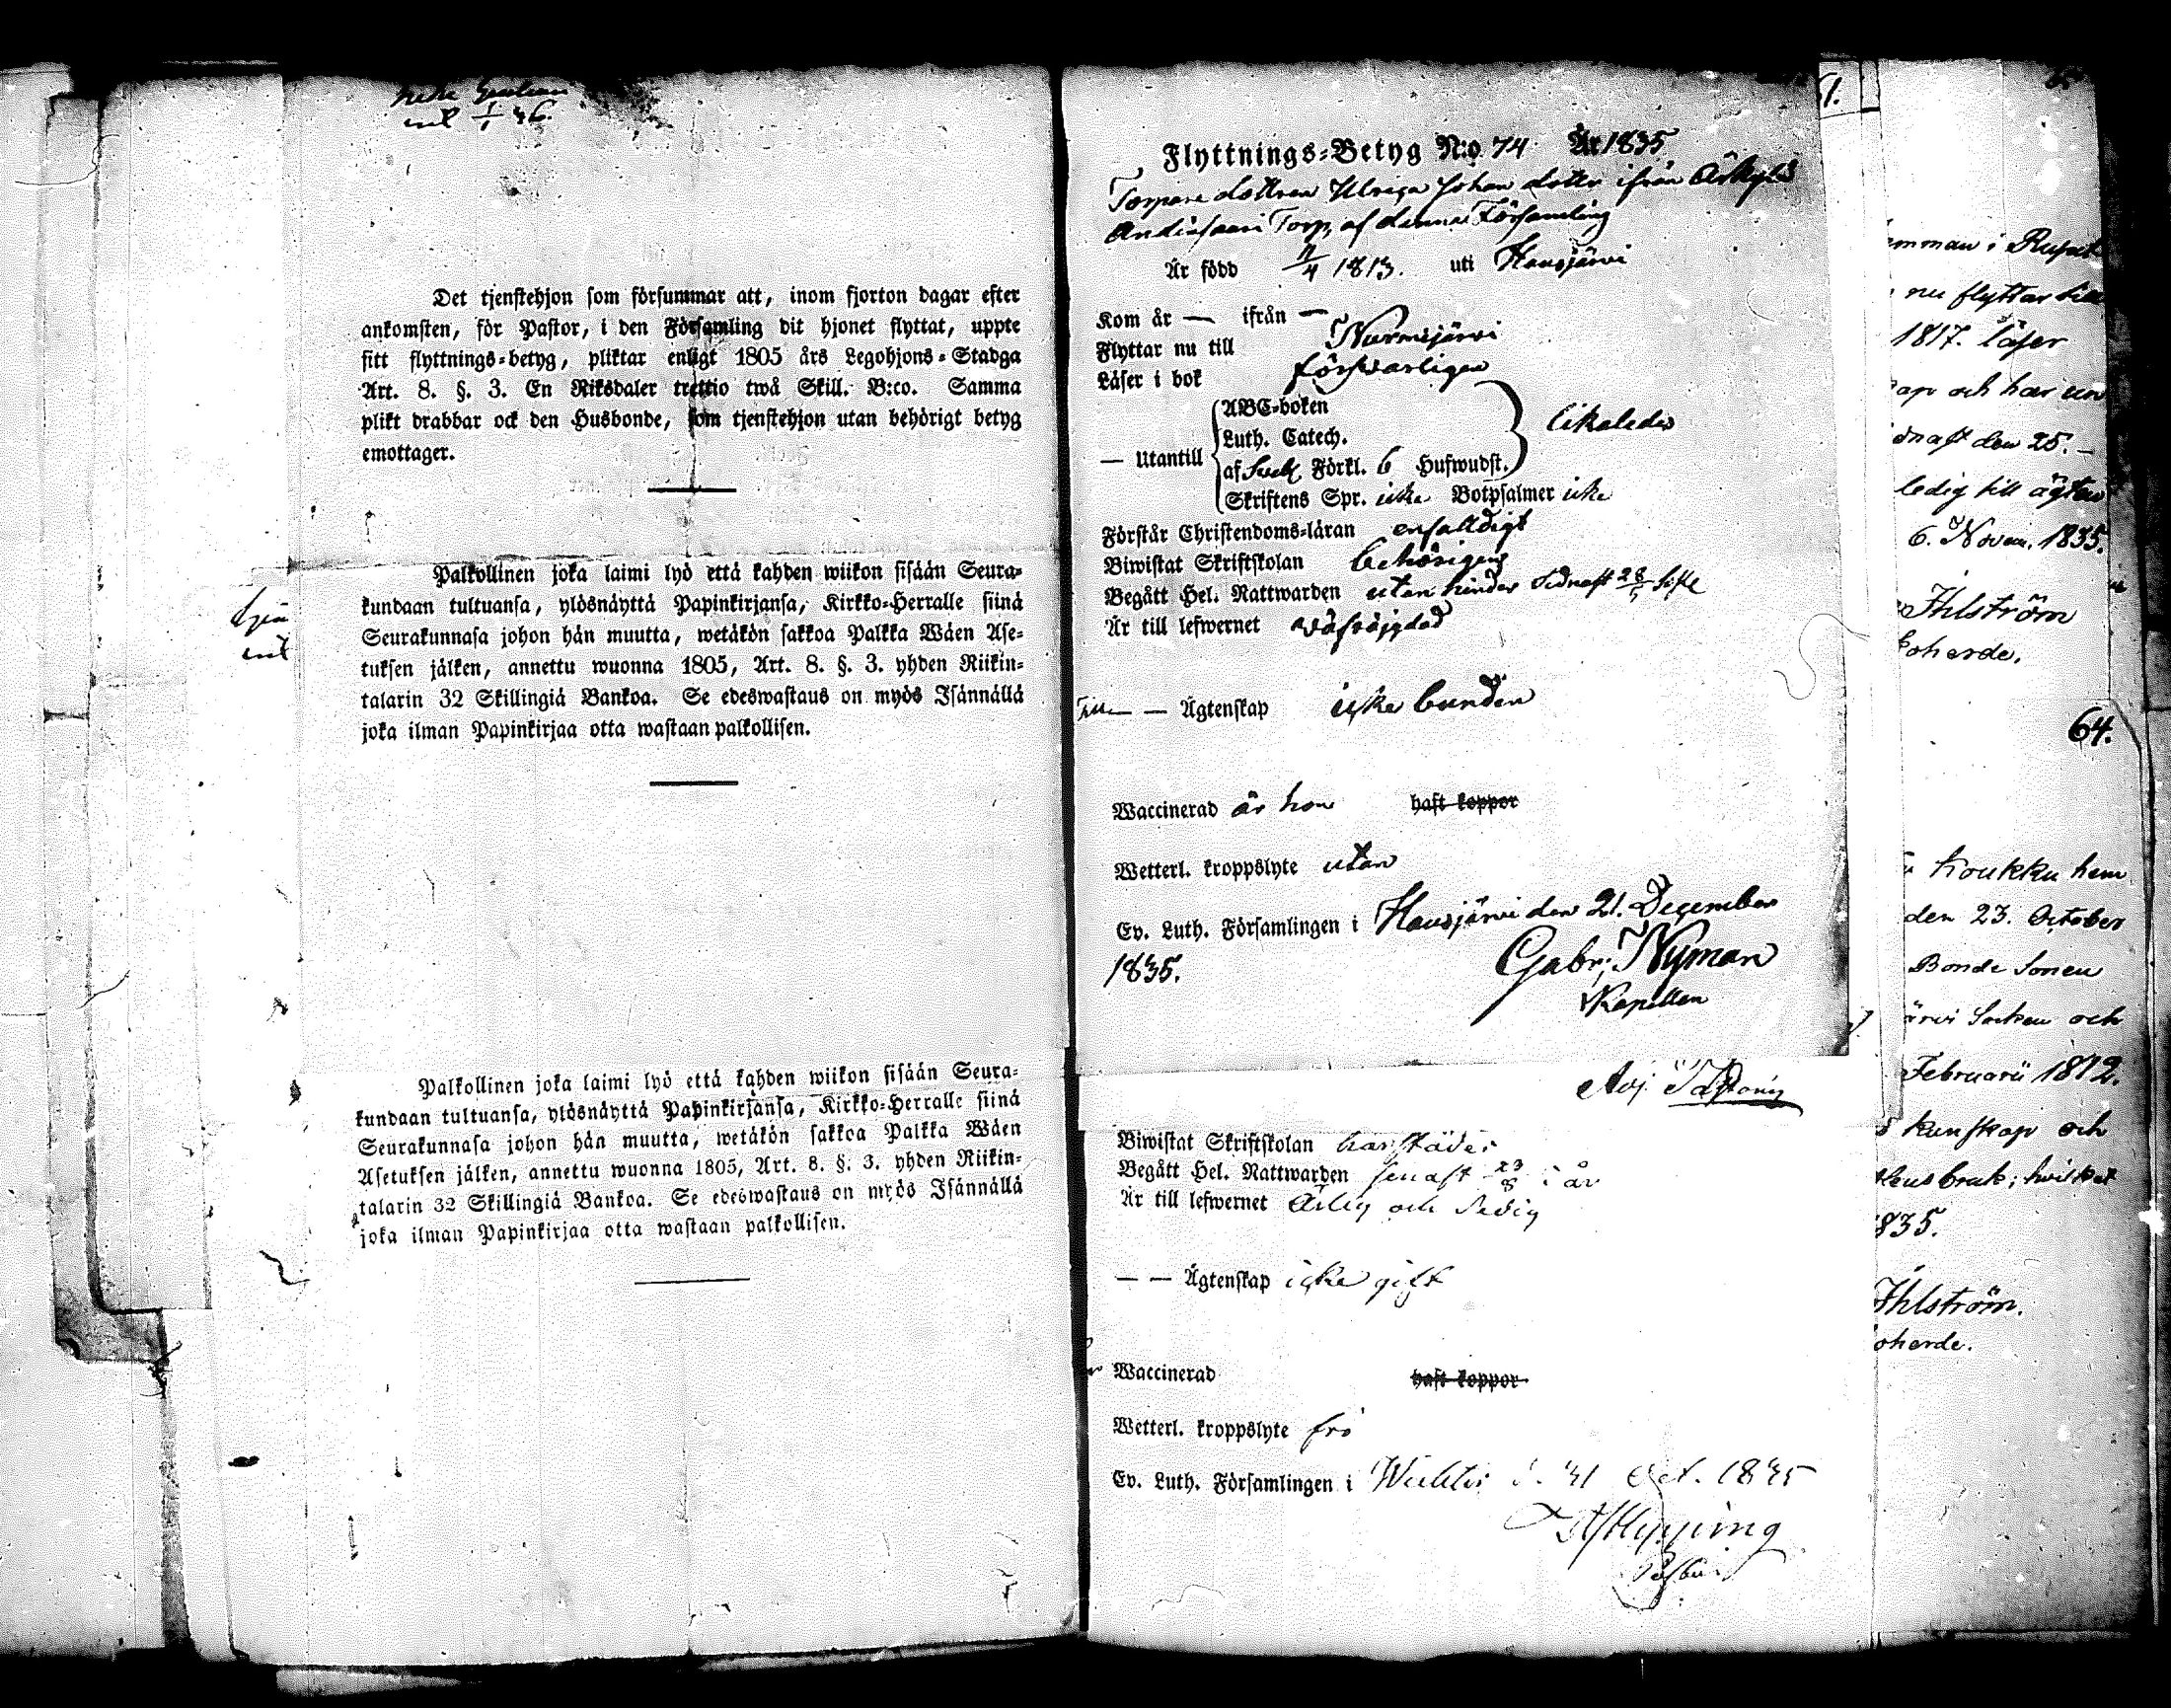 Det tjenstehjon som försummar att, inom fjorton dagar efter
ankomsten, för Pastor, i den Församling dit hjonet flyttat, uppte
sitt flyttnings-betyg, pliktar enligt 1805 års Legohjons-Stadga
Art. 8. §. 3. En Riksdaler trettio twå Skill. B:co. Samma
plikt drabbar ock den Husbonde, som tjenstehjon utan behörigt betyg
emottager.
Palkollinen joka laimi lyö että kahden wiikon sisään Seura-
kundaan tultuansa, ylösnäyttä Papinkirjansa, Kirkko-Herralle siinä
Seurakunnasa johon hän muutta, wetäkön sakkoa Palkka Wäen Ase-
tuksen jälken, annettu wuonna 1805, Art. 8. §. 3. yhden Riikin-
talarin 32 Skillingiä Bankoa. Se edeswastaus on myös Isännällä
joka ilman Papinkirjaa otta wastaan palkollisen.
Palkollinen joka laimi lyö että kahden wiikon sisään Seura-
kundaan tultuansa, ylösnäyttä Papinkirjansa, Kirkko-Herralle siinä
Seurakunnasa johon hän muutta, wetäkön sakkoa Palkka Wäen
Asetuksen jälken, annettu wuonna 1805, Art. 8. §. 3. yhden Riikin-
talarin 32 Skillingiä Bankoa. Se edeswastaus on myös Isännällä
joka ilman Papinkirjaa otta wastaan palkollisen.
Flyttnings-Betyg N:o 74 År 1835
Torpare dottren Ulrica Johan dotter ifrån
Torp, af denna Församling
Är född 11/4 1813. uti Hausjärvi
Kom år — ifrån —
Flyttar nu till Nurmisjärvi
Läser i bok försvarligen
— Utantill
ABC-boken
Luth. Catech. likaledes
af Förkl. 6 Hufwudst.
Skriftens Spr. icke Botpsalmer icke
Förstår Christendoms-läran enfalldigt
Biwistat Skriftskolan behörigen
Begått Hel. Nattwarden utan hinder sednast
Är till lefwernet
— — Ägtenskap icke bunden
Waccinerad är hon haft koppor
Wetterl. kroppslyte utan
Ev. Luth. Församlingen i Hausjärvi den 21. December
1835.
Gabr. Nyman
Kapellan
Biwistat Skriftskolan
Begått Hel. Nattwarden senast 23/8 i år
Är till lefwernet Ärlig och Sedig
— — Ägtenskap icke gift
Waccinerad haft koppor
Wetterl. kroppslyte fri
Ev. Luth. Församlingen i Wichtis d. 31 Oct. 1835
Hipping
nu flyttar till
1817. läser
och har un
den 25. —
ledig till ägten
6. Novem. 1835.
Ihlström
oherde.
64.
Koukku hem
den 23. October
Bonde Sonen
ärvi Socken och
Februarii 1812.
kunskap och
bruk; hvilket
835.
Ihlström.
oherde.